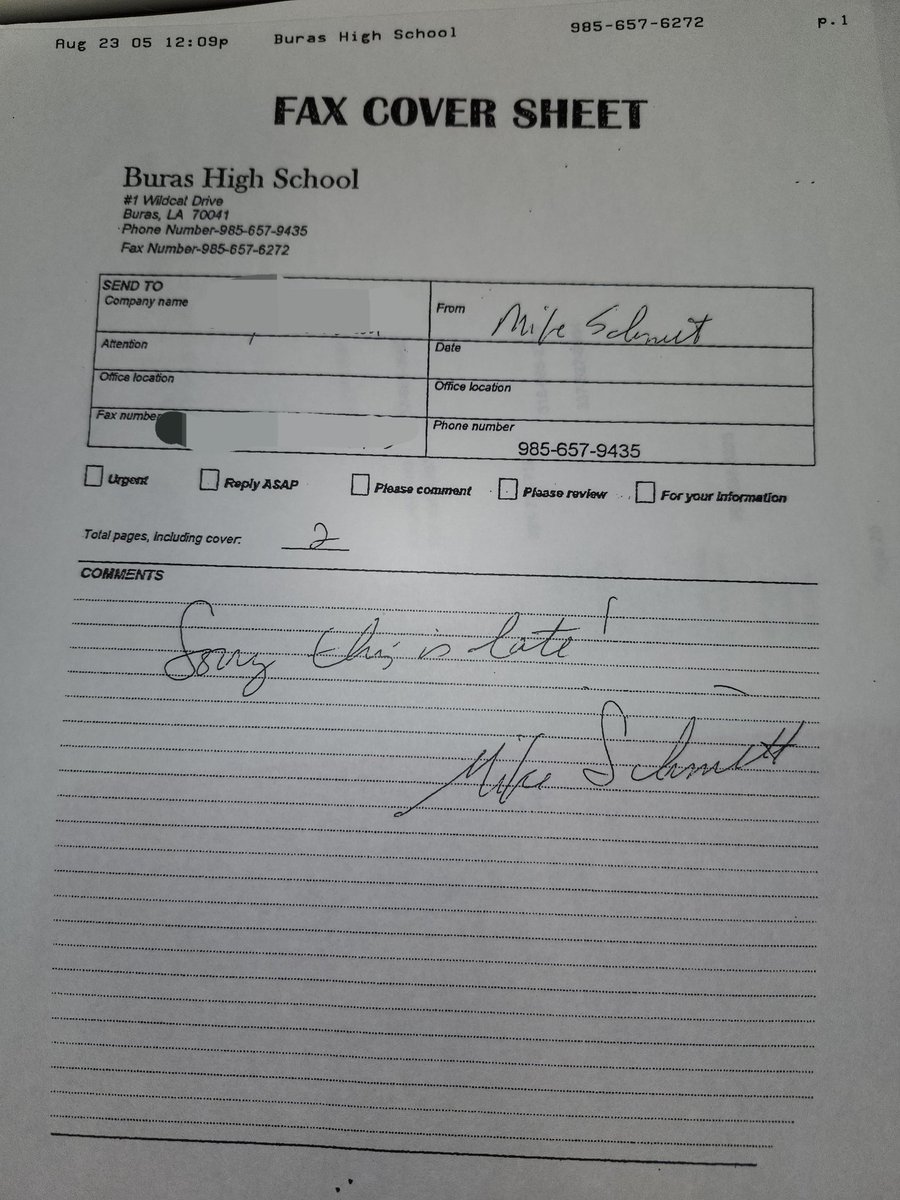 Aug 23 05 12:09p Buras High School 985-657-6272 p.1
FAX COVER SHEET
Buras High School
#1 Wildcat Drive
Buras, LA 70041
Phone Number-985-657-9435
Fax Number-985-657-6272
SEND TO
Company name
From Mike Schmitt
Attention
Date
Office location
Office location
Fax number
Phone number
985-657-9435
Urgent Reply ASAP Please comment Please review For your information
Total pages, including cover: 2
COMMENTS
Sorry this is late!
Mike Schmitt